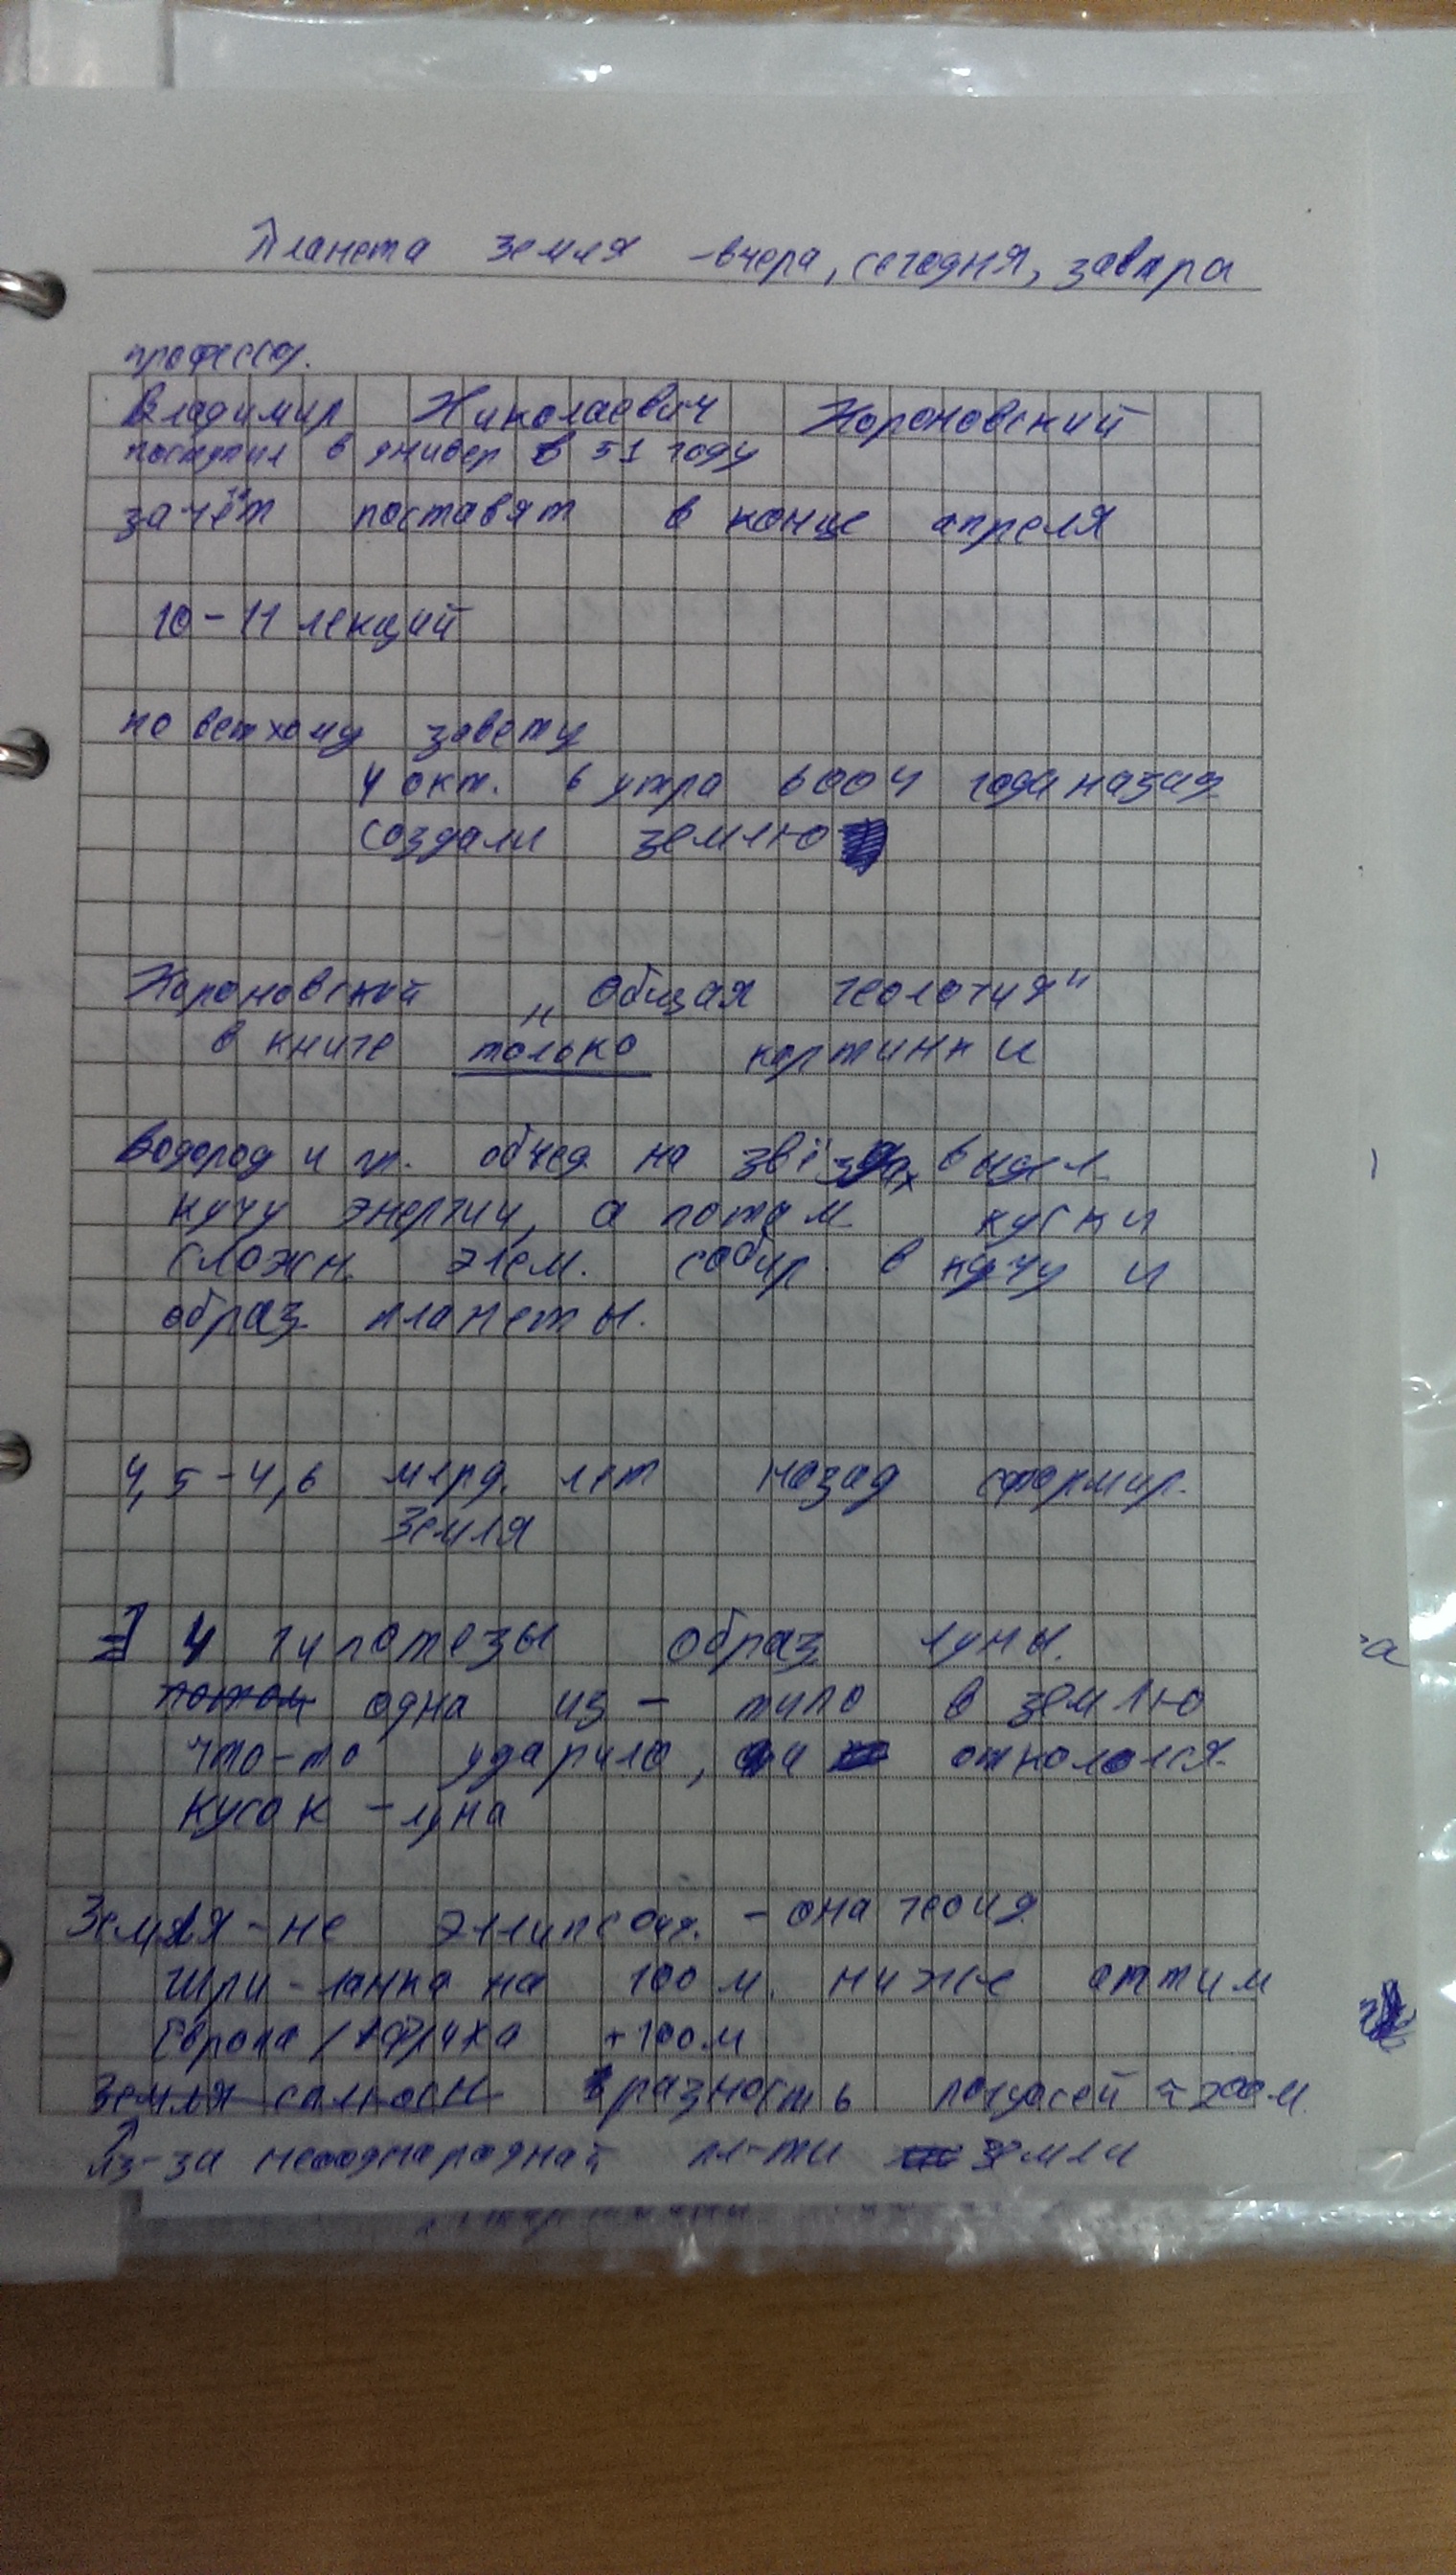 Планета Земля – вчера, сегодня, завтра
профессор.
Владимир Николаевич Короновский
поступил в универ в 51 году
зачёт поставят в конце апреля
10 – 11 лекций
по ветхому завету
4 окт. 6 утра 6004 года назад
создали землю
Короновский „Общая геология"
в книге только картинки
Водород и гр. объед. на звёздах выдел.
кучу энергии, а потом куски
сложн. элем. собир. в кучу и
образ. планеты.
4,5 – 4,6 млрд. лет назад сформир.
Земля
∃ 4 гипотезы образ. луны.
потом одна из – типо в землю
что-то ударило, и откололся
кусок – луна
Земля – не эллипсоид. – она геоид
Шри-ланка на 100 м. ниже
Европа / Африка +100м
Земля разность ≈ 200 м.
Из-за неоднородной пл-ти земли